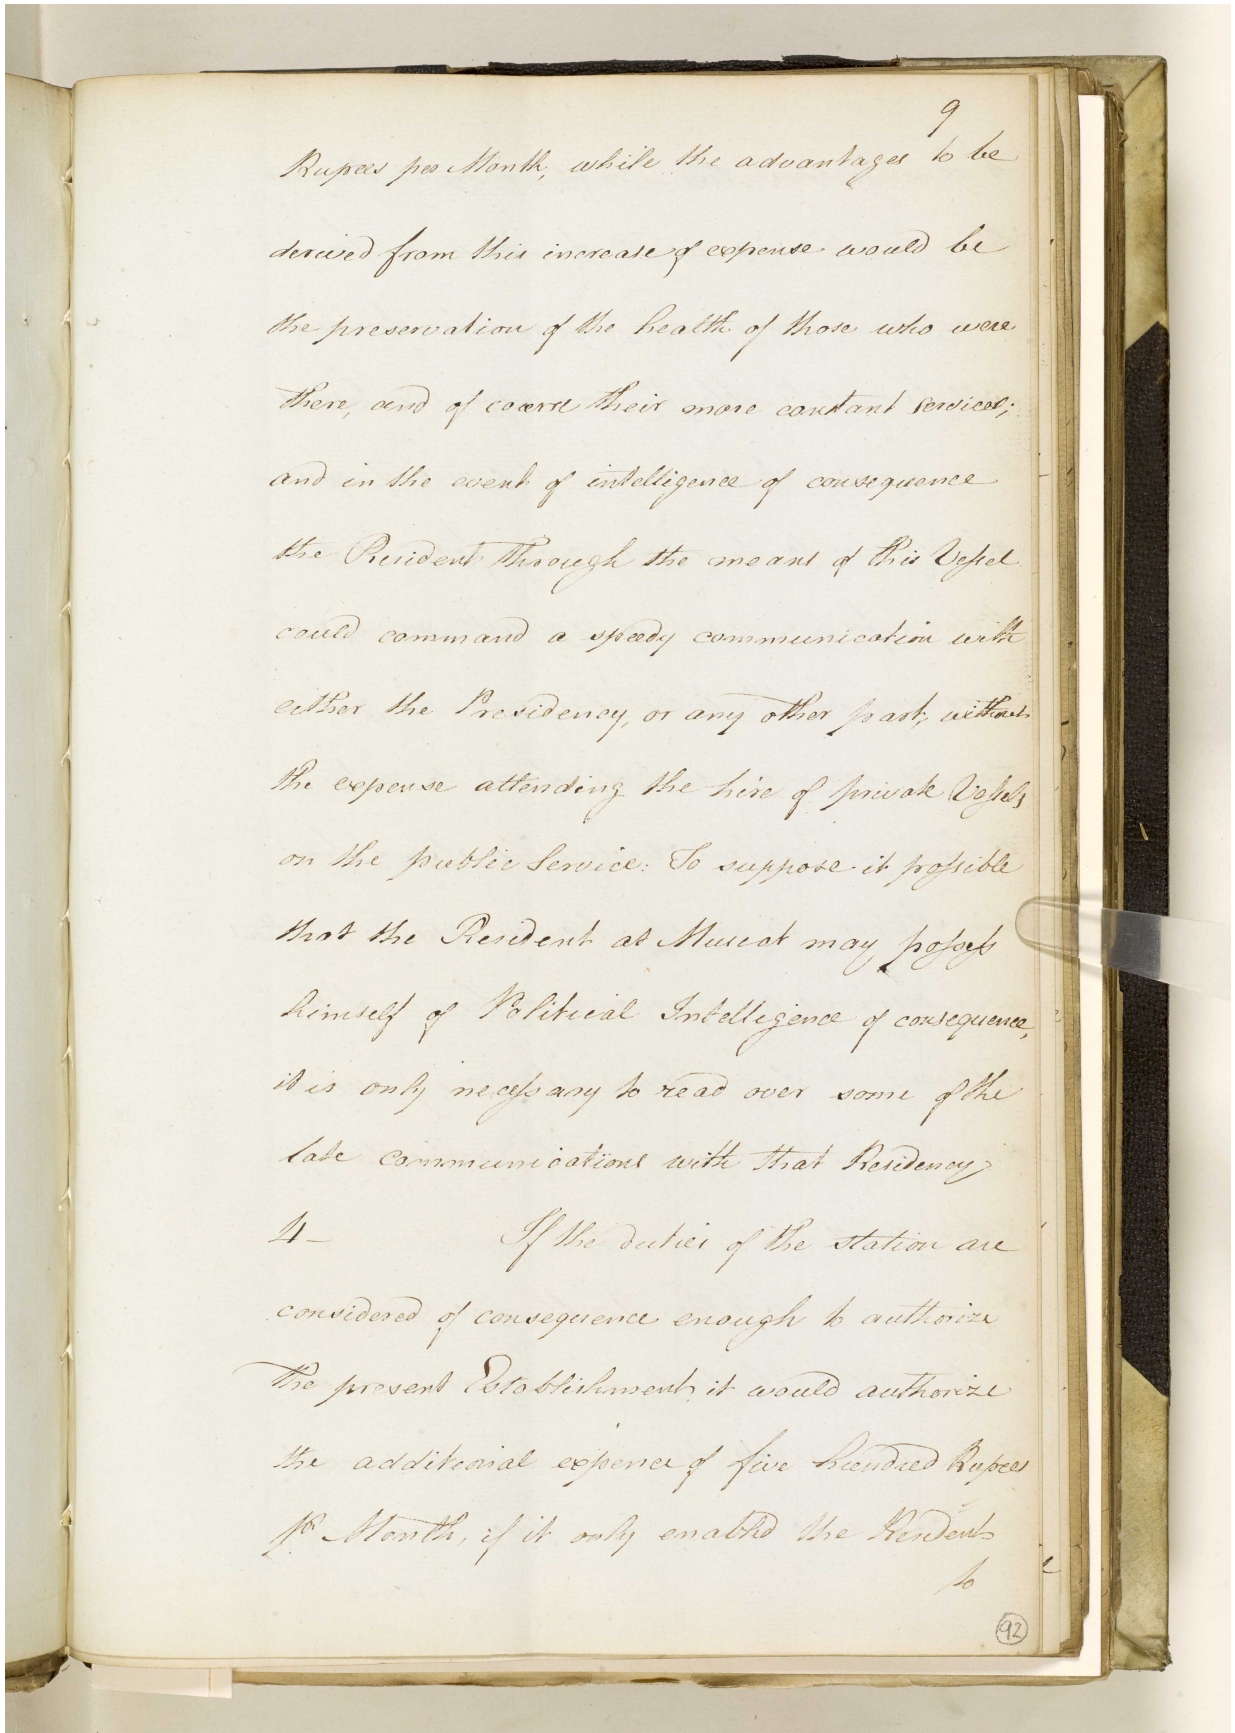 9
Rupees per Month, while the advantages to be
derived from this increase of expense would be
the preservation of the health of those who were
there, and of course their more constant services;
and in the event of intelligence of consequence
the Resident through the means of this Vessel
could command a speedy communication with
either the Presidency, or any other part, without
the expense attending the hire of private Vessels
on the public Service: To suppose it possible
that the Resident at Muscat may possess
himself of Political Intelligence of consequence,
it is only necessary to read over some of the
late communications with that Residency
4 – If the duties of the station are
considered of consequence enough to authorize
the present Establishment, it would authorize
the additional expence of five hundred Rupees
pr Month, if it only enabled the Resident
to
92